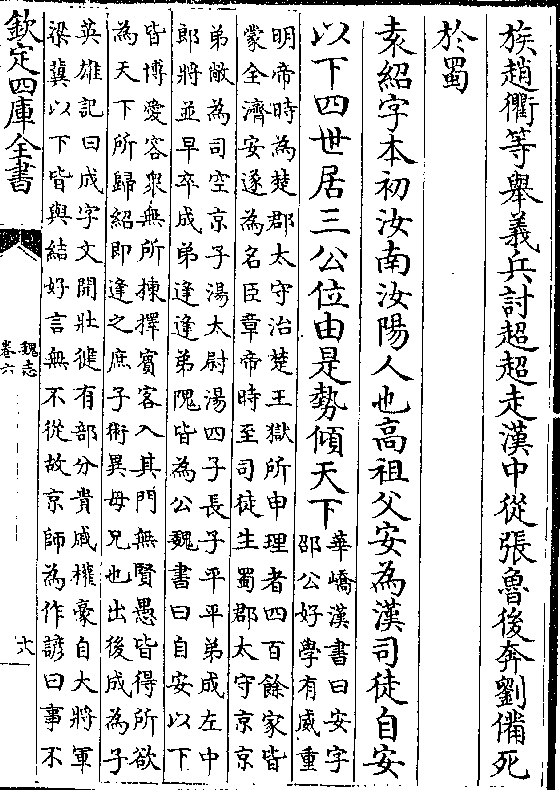 族趙衢等舉義兵討超超走漢中從張魯後奔劉備死
於蜀
袁紹字本初汝南汝陽人也高祖父安為漢司徒自安
以下四世居三公位由是勢傾天下
華嶠漢書曰安字
邵公好學有威重
明帝時為楚郡太守治楚王獄所申理者四百餘家皆
蒙全濟安遂為名臣章帝時至司徒生蜀郡太守京京
弟敞為司空京子湯太尉湯四子長子平平弟成左中
郎將並早卒成弟逢逢弟隗皆為公魏書曰自安以下
皆博愛容衆無所揀擇賓客入其門無賢愚皆得所欲
為天下所歸紹即逢之庶子術異母兄也出後成為子
英雄記曰成字文開壯健有部分貴戚權豪自大將軍
梁冀以下皆與結好言無不從故京師為作諺曰事不
欽定四庫全書
魏志
卷六